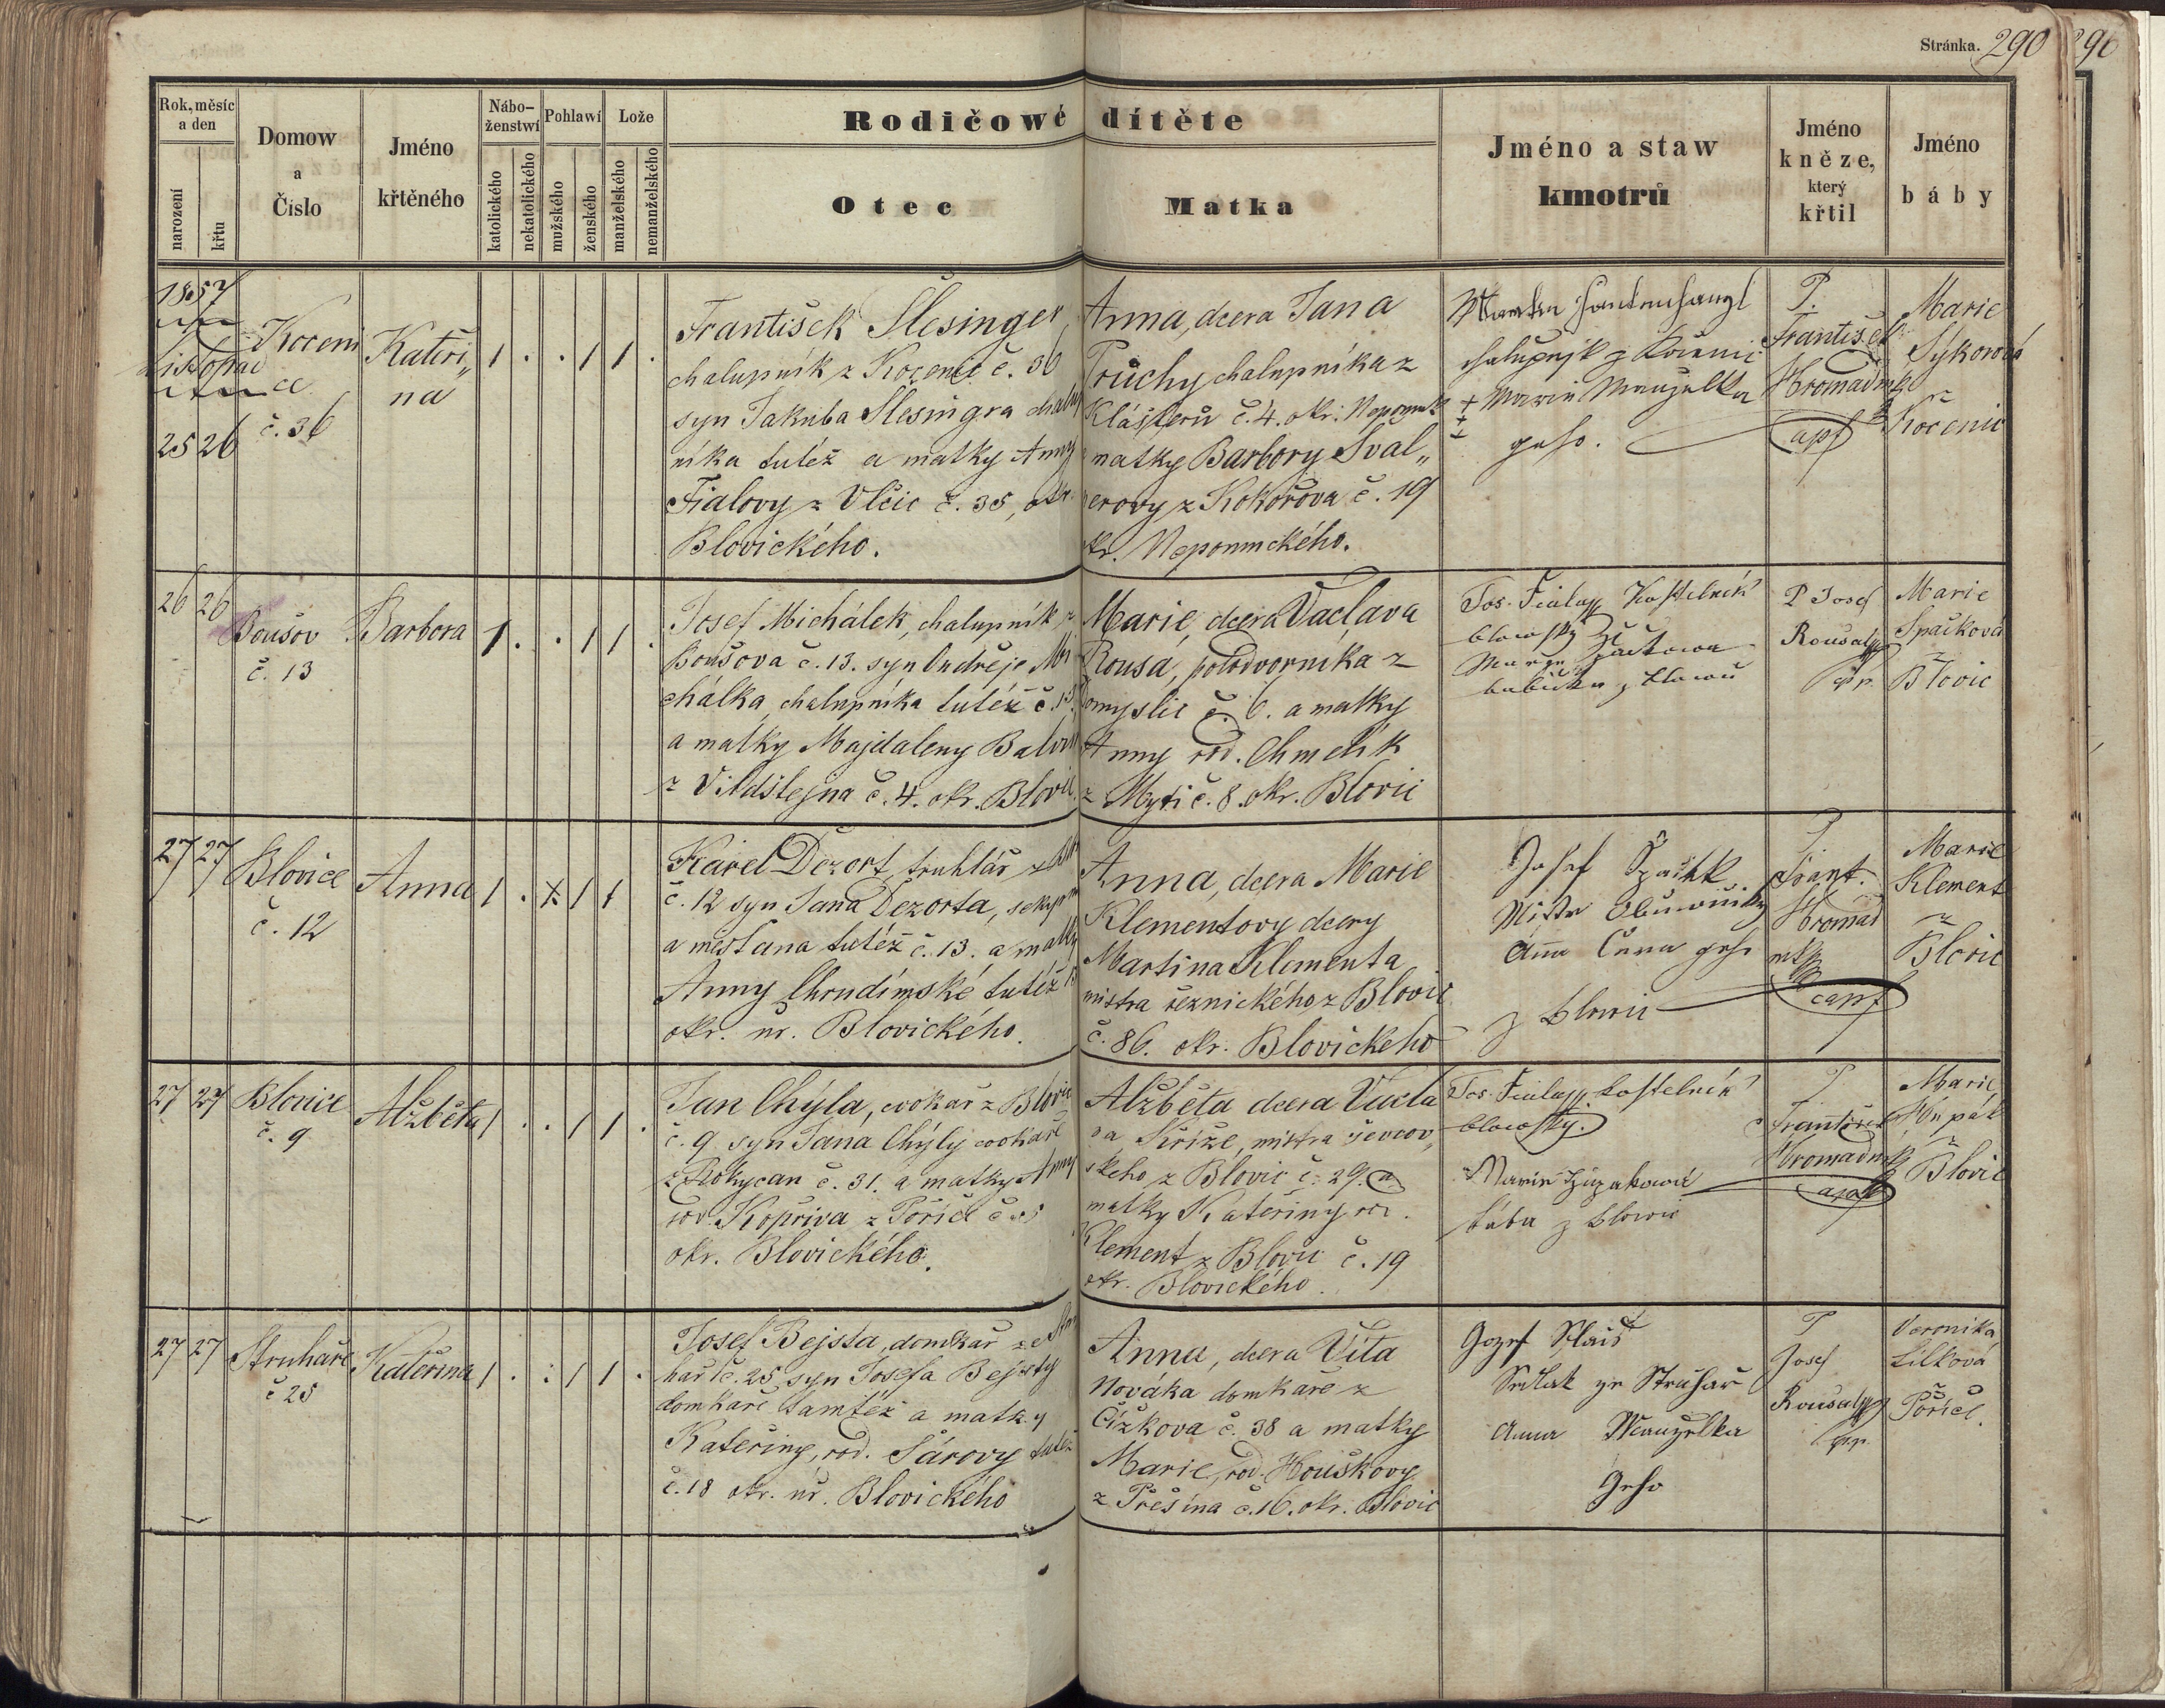 Stránka. 290
290
Rok, měsíc a den
narození
křtu
Domow a Číslo
Jméno křtěného
Náboženstwí
katolického
nekatolického
Pohlawí
mužského
ženského
Lože
manželského
nemanželského
Rodičowé dítěte
Otec
Matka
Jméno a staw kmotrů
Jméno kněze, který křtil
Jméno báby
1857
Listopad
25 26
Kocenice
č. 36
Kateři„
na
1 . . 1 1 .
František Slesinger,
chalupník z Kocenic č. 36
syn Jakuba Slesingra chalup
níka tutéž a matky Anny
Fialovy z Vlčic č. 35, okr.
Blovického.
Anna, dcera Jana
Průchy chalupníka z
Klášteru č. 4. okr. Nepomuk
matky Barbory Sval„
erovy z Kokořova č. 19
okr. Nepomuckého.
Martin
chalupnjk z Kocenic
+++ Marie Manželka
geho.
P.
František
Hromadník
Marie
Sýkorová
z
Kocenic
26 26
Boušov
č. 13
Barbora
1 . . 1 1 .
Josef Michálek, chalupník z
Boušova č. 13. syn Ondřeje Mi
chálka, chalupníka tutéž č. 13.
a matky Majdaleny
z Vildštejna č. 4. okr. Blovic.
Marie, dcera Václava
Rousa, polodvorníka z
Domyslic č. 6. a matky
Anny rod. Chmelík
z Mytí č. 8. okr. Blovic
Jos. Fiala Kostelník
blowsky
babička z Blowic
P Josef
Rousal
Marie
Špačková
z
Blovic
27 27
Blovice
č. 12
Anna
1 . x 1 1
Karel Dezort, truhlář z
č. 12 syn Jana Dezorta,
a mešťana tutéž č. 13. a matky
Anny Chrudimské tutéž
okr. úř. Blovického.
Anna, dcera Marie
Klementovy dcery
Martina Klementa
mistra řeznického z Blovic
č. 86. okr. Blovického
Josef Spaček
Mistr Obuwnický
Anna Cera geho
z Blowic
P.
Frant.
Hromad
ník
Marie
Klement
z
Blovic
27 27
Blovice
č. 9
Alžběta
1 . . 1 1 .
Jan Chýla, cvokař z Blovic
č. 9 syn Jana Chýly cvokaře
z Rokycan č. 31. a matky Anny
rod. Kopřiva z Poříčí
okr. Blovického.
Alžběta dcera Václa
va Kříže, mistra ševcov„
ského z Blovic č. 29. a
matky Kateřiny roz.
Klement z Blovic č. 19
okr. Blovického.
Jos. Fiala kostelník
blowský.
Marie
bába z Blowic
P
František
Hromadník
Marie
z
Blovic
27 27
Struhaře
č 25
Kateřina
1 . : 1 1 .
Josef Bejsta, domkář ze Stru
hař č. 25, syn Josefa Bejsty
domkaře tamtéž a matky
Kateřiny, rod. Sárovy tutéž
č. 18 okr. úř. Blovického
Anna, dcera Víta
Nováka domkaře z
Čížkova č. 38 a matky
Marie, rod. Houškovy
z Přešína č. 16. okr. Blovic
Gozef
Sedlak ze Struhař
Anna Manželka
Geho
P
Josef
Rousal
Veronika
Lilková
z
Poříčí.